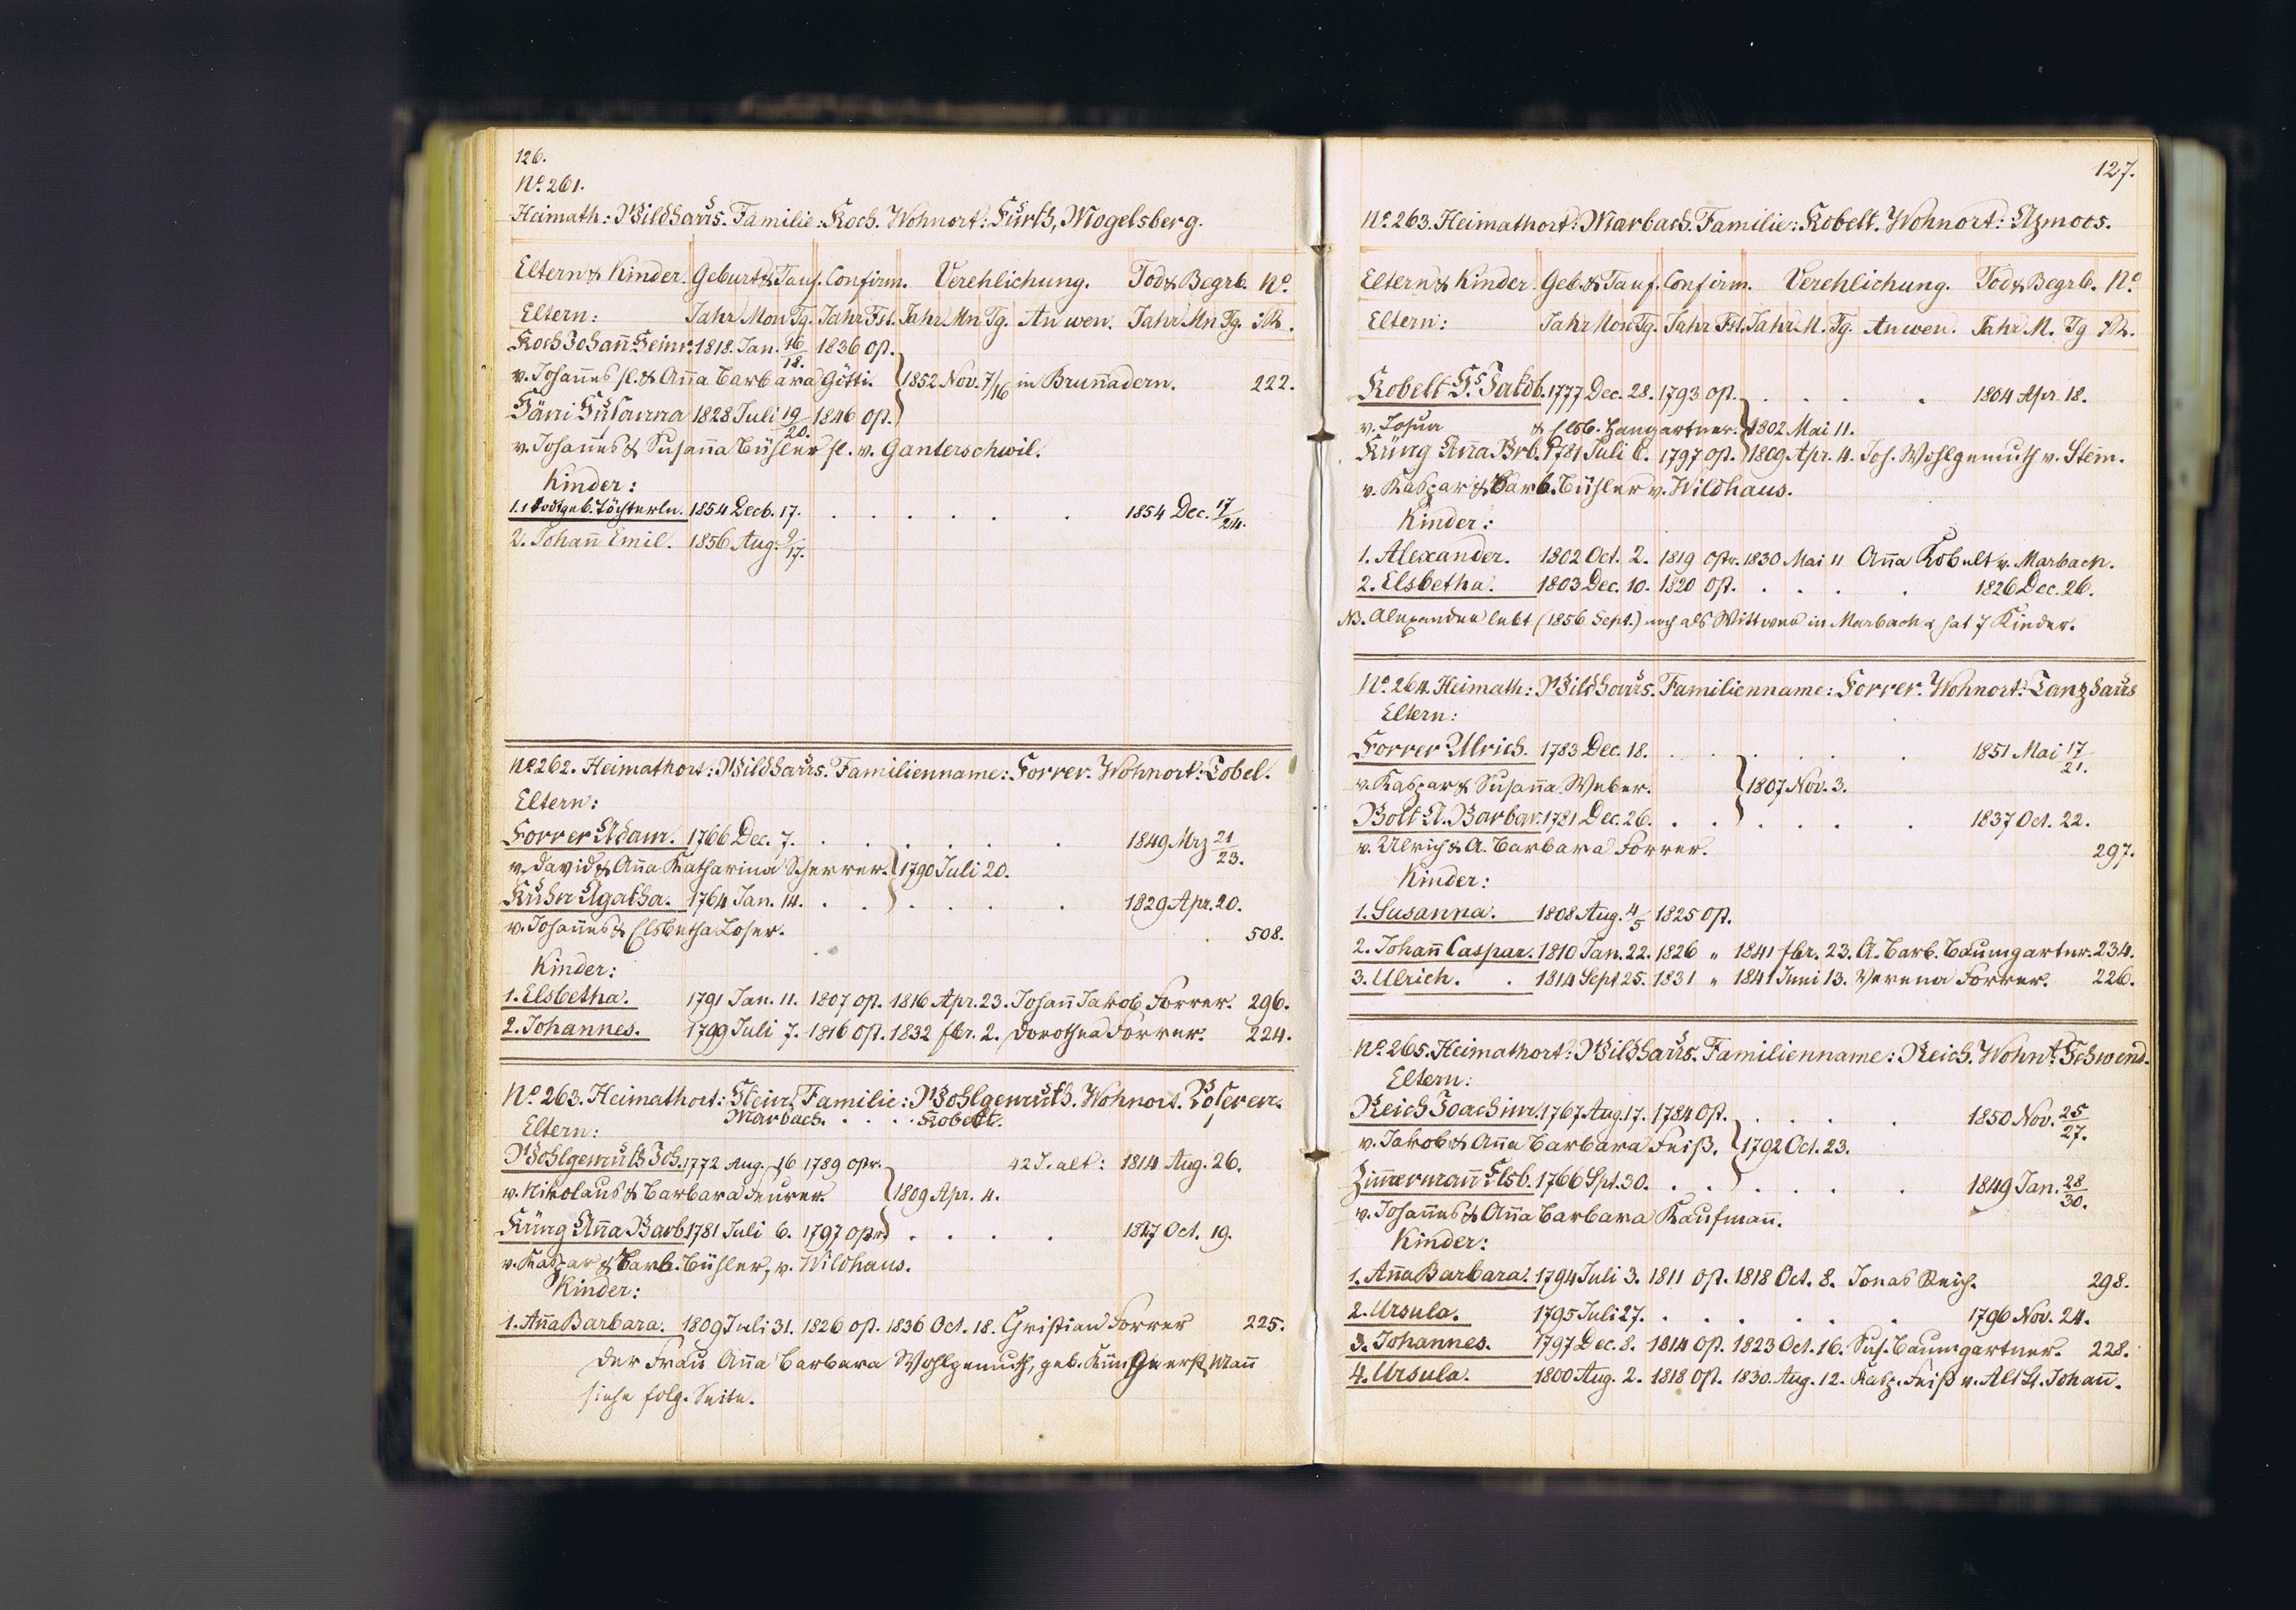 126.
No. 261.
Heimath: Wildhaus. Familie: Koch. Wohnort: Furth, Mogelsberg.
Eltern & Kinder. Geburt & Tauf. Confirm. Verehlichung. Tod & Begrb. No.
Eltern: Jahr Mon Tg. Jahr Fst. Jahr Mn Tg. An wen. Jahr Mn Tg.
Koch Johañ Heinr. 1818. Jan. 16/18. 1836 Ost.
v. Johañes sl. & Añna Barbara Götti. 1852 Nov. 7/16 in Bruñadern. 222.
Susanna 1828 Juli 19/20. 1846 Ost.
v. Johañes & Susañna Bühler sl. v. Ganterschwil.
Kinder:
1. 1 todtgeb. Töchterln. 1854 Decb. 17. . . . . . . 1854 Dec. 17/24.
2. Johañ Emil. 1856 Aug. 9/17.
No. 262. Heimathort: Wildhaus. Familienname: Forrer. Wohnort: Tobel.
Eltern:
Forrer Adam. 1766 Dec. 7. . . . . . . 1849 Mrz 21/23.
v. David & Añna Katharina Scherrer. 1790 Juli 20.
Kuhn Agatha. 1764 Jan. 14. . . . . . . 1829 Apr. 20.
v. Johañes & Elsbetha Loser. 508.
Kinder:
1. Elsbetha. 1791 Jan. 11. 1807 Ost. 1816 Apr. 23. Johañ Jakob Forrer. 296.
2. Johannes. 1799 Juli 7. 1816 Ost. 1832 Fbr. 2. Dorothea Forrer. 224.
No. 263. Heimathort: Stein. Familie: Wohlgemuth. Wohnort.
Marbach. . . . . Kobelt.
Eltern:
Wohlgemuth Joh. 1772 Aug. 16 1789 Ostr. 42 J. alt: 1814 Aug. 26.
v. Nikolaus & Barbara Feurer. 1809 Apr. 4.
Küng Añna Barb. 1781 Juli 6. 1797 Ostr. . . . . 1827 Oct. 19.
v. Kaspar & Barb. Bühler, v. Wildhaus.
Kinder:
1. Añna Barbara. 1809 Juli 31. 1826 Ost. 1836 Oct. 18. Christian Forrer 225.
Der Frau Añna Barbara Wohlgemuth, geb. Küng erst. Mañ
siehe folg. Seite.
127.
No. 263. Heimathort: Marbach. Familie: Kobelt. Wohnort: Azmoos.
Eltern & Kinder Geb. & Tauf. Confirm. Verehlichung. Tod & Begrb. No.
Eltern: Jahr Mon Tg. Jahr Fst. Jahr M. Tg. An wen. Jahr M. Tg
Kobelt Hs. Jakob. 1777 Dec. 28. 1793 Ost. . . . . 1804 Apr. 18.
v. Josua & Elsb. Hangartner. 1802 Mai 11.
Küng Añna Brb. 1781 Juli 6. 1797 Ost. 1809 Apr. 4. Joh. Wohlgemuth v. Stein.
v. Kaspar & Barb. Bühler v. Wildhaus.
Kinder:
1. Alexander. 1802 Oct. 2. 1819 Ostr. 1830 Mai 11 Añna Kobelt v. Marbach.
2. Elsbetha. 1803 Dec. 10. 1820 Ost. . . . . 1826 Dec. 26.
NB. Alexander lebt (1856 Sept.) noch als Wittwer in Marbach & hat 7 Kinder.
No. 264. Heimath: Wildhaus. Familienname: Forrer. Wohnort: Tanzhaus
Eltern:
Forrer Ulrich. 1783 Dec. 18. . . . . . 1851 Mai 17/21.
v. Kaspar & Susañna Weber. 1807 Nov. 3.
Bolt A. Barbar. 1781 Dec. 26. . . . . . . 1837 Oct. 22.
v. Ulrich & A. Barbara Forrer. 297.
Kinder:
1. Susanna. 1808 Aug. 4/5 1825 Ost.
2. Johañ Caspar. 1810 Jan. 22. 1826 " 1841 Fbr. 23. A. Barb. Baumgartner. 234.
3. Ulrich. . 1814 Sept 25. 1831 " 1841 Juni 13. Verena Forrer. 226.
No. 265. Heimathort: Wildhaus. Familienname: Reich. Wohnt. Schwend.
Eltern:
Reich Joachim. 1767 Aug. 17. 1784 Ost. . . . . 1850 Nov. 25/27.
v. Jakob & Añna Barbara Feiß. 1792 Oct. 23.
Zim̃ermañ Elsb. 1766 Spt. 30. . . . . . 1849 Jan. 28/30.
v. Johañes & Añna Barbara Kaufmañ.
Kinder:
1. Añna Barbara. 1794 Juli 3. 1811 Ost. 1818 Oct. 8. Jonas Reich. 298.
2. Ursula. 1795 Juli 27. . . . . . 1796 Nov. 24.
3. Johannes. 1797 Dec. 8. 1814 Ost. 1823 Oct. 16. Sus. Baumgartner. 228.
4. Ursula. 1800 Aug. 2. 1818 Ost. 1830. Aug. 12. Kasp. Feiß v. Alt St. Johañ.